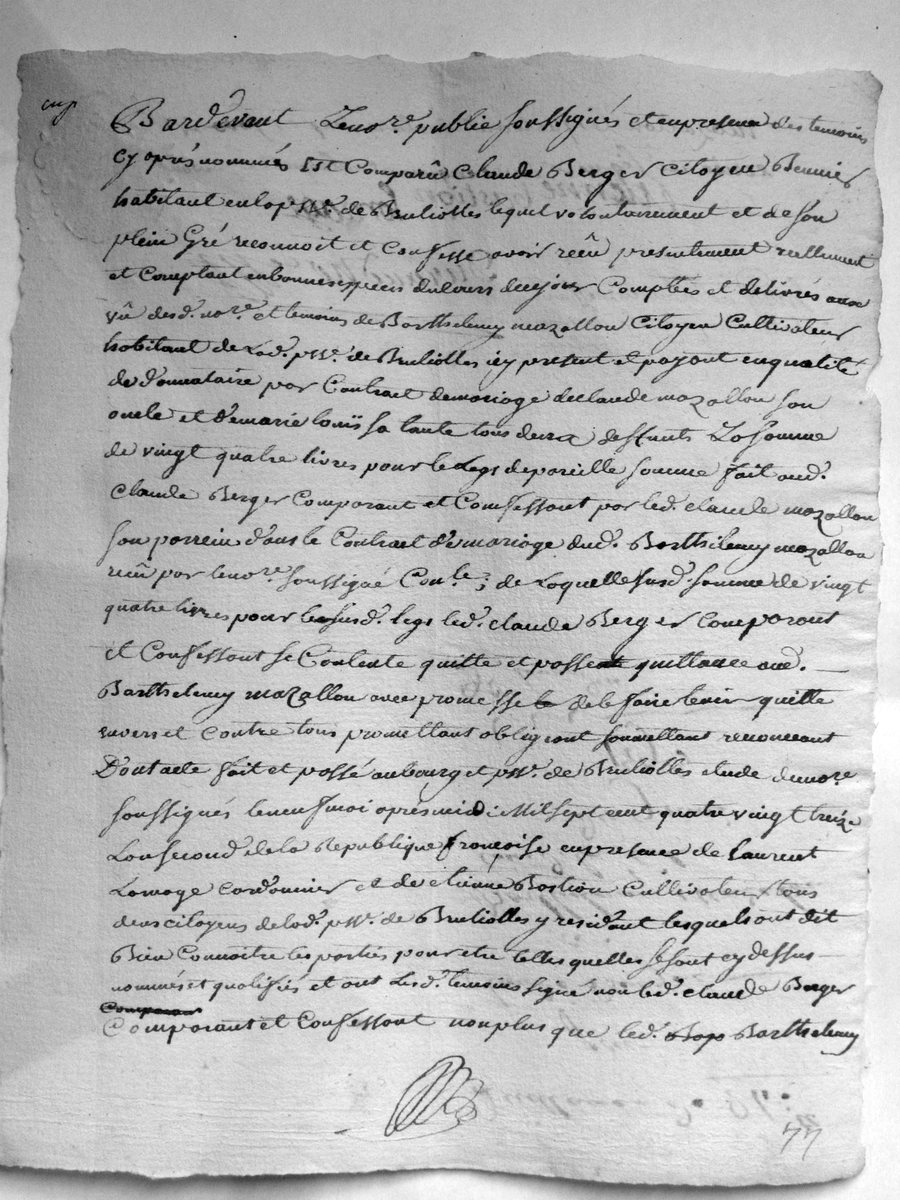 exp
Pardevant Le no.re public soussignés et en presence des temoins
cy aprés nommés Est Comparû Claude Berger Citoyen
habitant en la p.sse de Brullioles lequel volontairement et de son
plein Gré reconnoit et Confesse avoir reçû presentement reellement
et Comptant en bonnes especes du Cours de ce jour Comptés et delivrés aux
vû desd. no.re et temoins de Barthelemy mazallon Citoyen Cultivateur
habitant de Lad. p.sse de Brullioles icy present et payant en qualité
de donnataire par Contract de mariage de claude mazallon son
oncle et de marie Louis sa tante tous deux deffunts La somme
de vingt quatre livres pour le Legs de pareille somme fait aud.
Claude Berger Comparant et Confessant par led. claude mazallon
son parrein dans le Contract de mariage dud. Barthelemy mazallon
reçû par le no.re soussigné ; de Laquelle susd. somme de vingt
quatre livres pour le susd. legs led. claude Berger Comparant
et Confessant se Contente quitte et passe quittance aud.
Barthelemy mazallon avec promesse de le faire tenir quitte
envers et Contre tous promettant obligeant soumettant renonceant
Dont acte fait et passé au bourg et p.sse de Brullioles etude du no.re
soussignés le neuf mai aprés midi Mil sept cent quatre vingt treize
Lan second de la Republique françoise en presence de Laurent
Lamage Cordonnier et de etienne Bastion Cultivateur tous
deux citoyens de lad. p.sse de Brullioles y residant lesquels ont dit
Bien Connoitre les parties pour etre telles quelles se sont cy dessus
nommés et qualifiés et ont Lesd. temoins signé non led. claude Berger
Comparant
Comparant et Confessant non plus que led. Bap Barthelemy
77